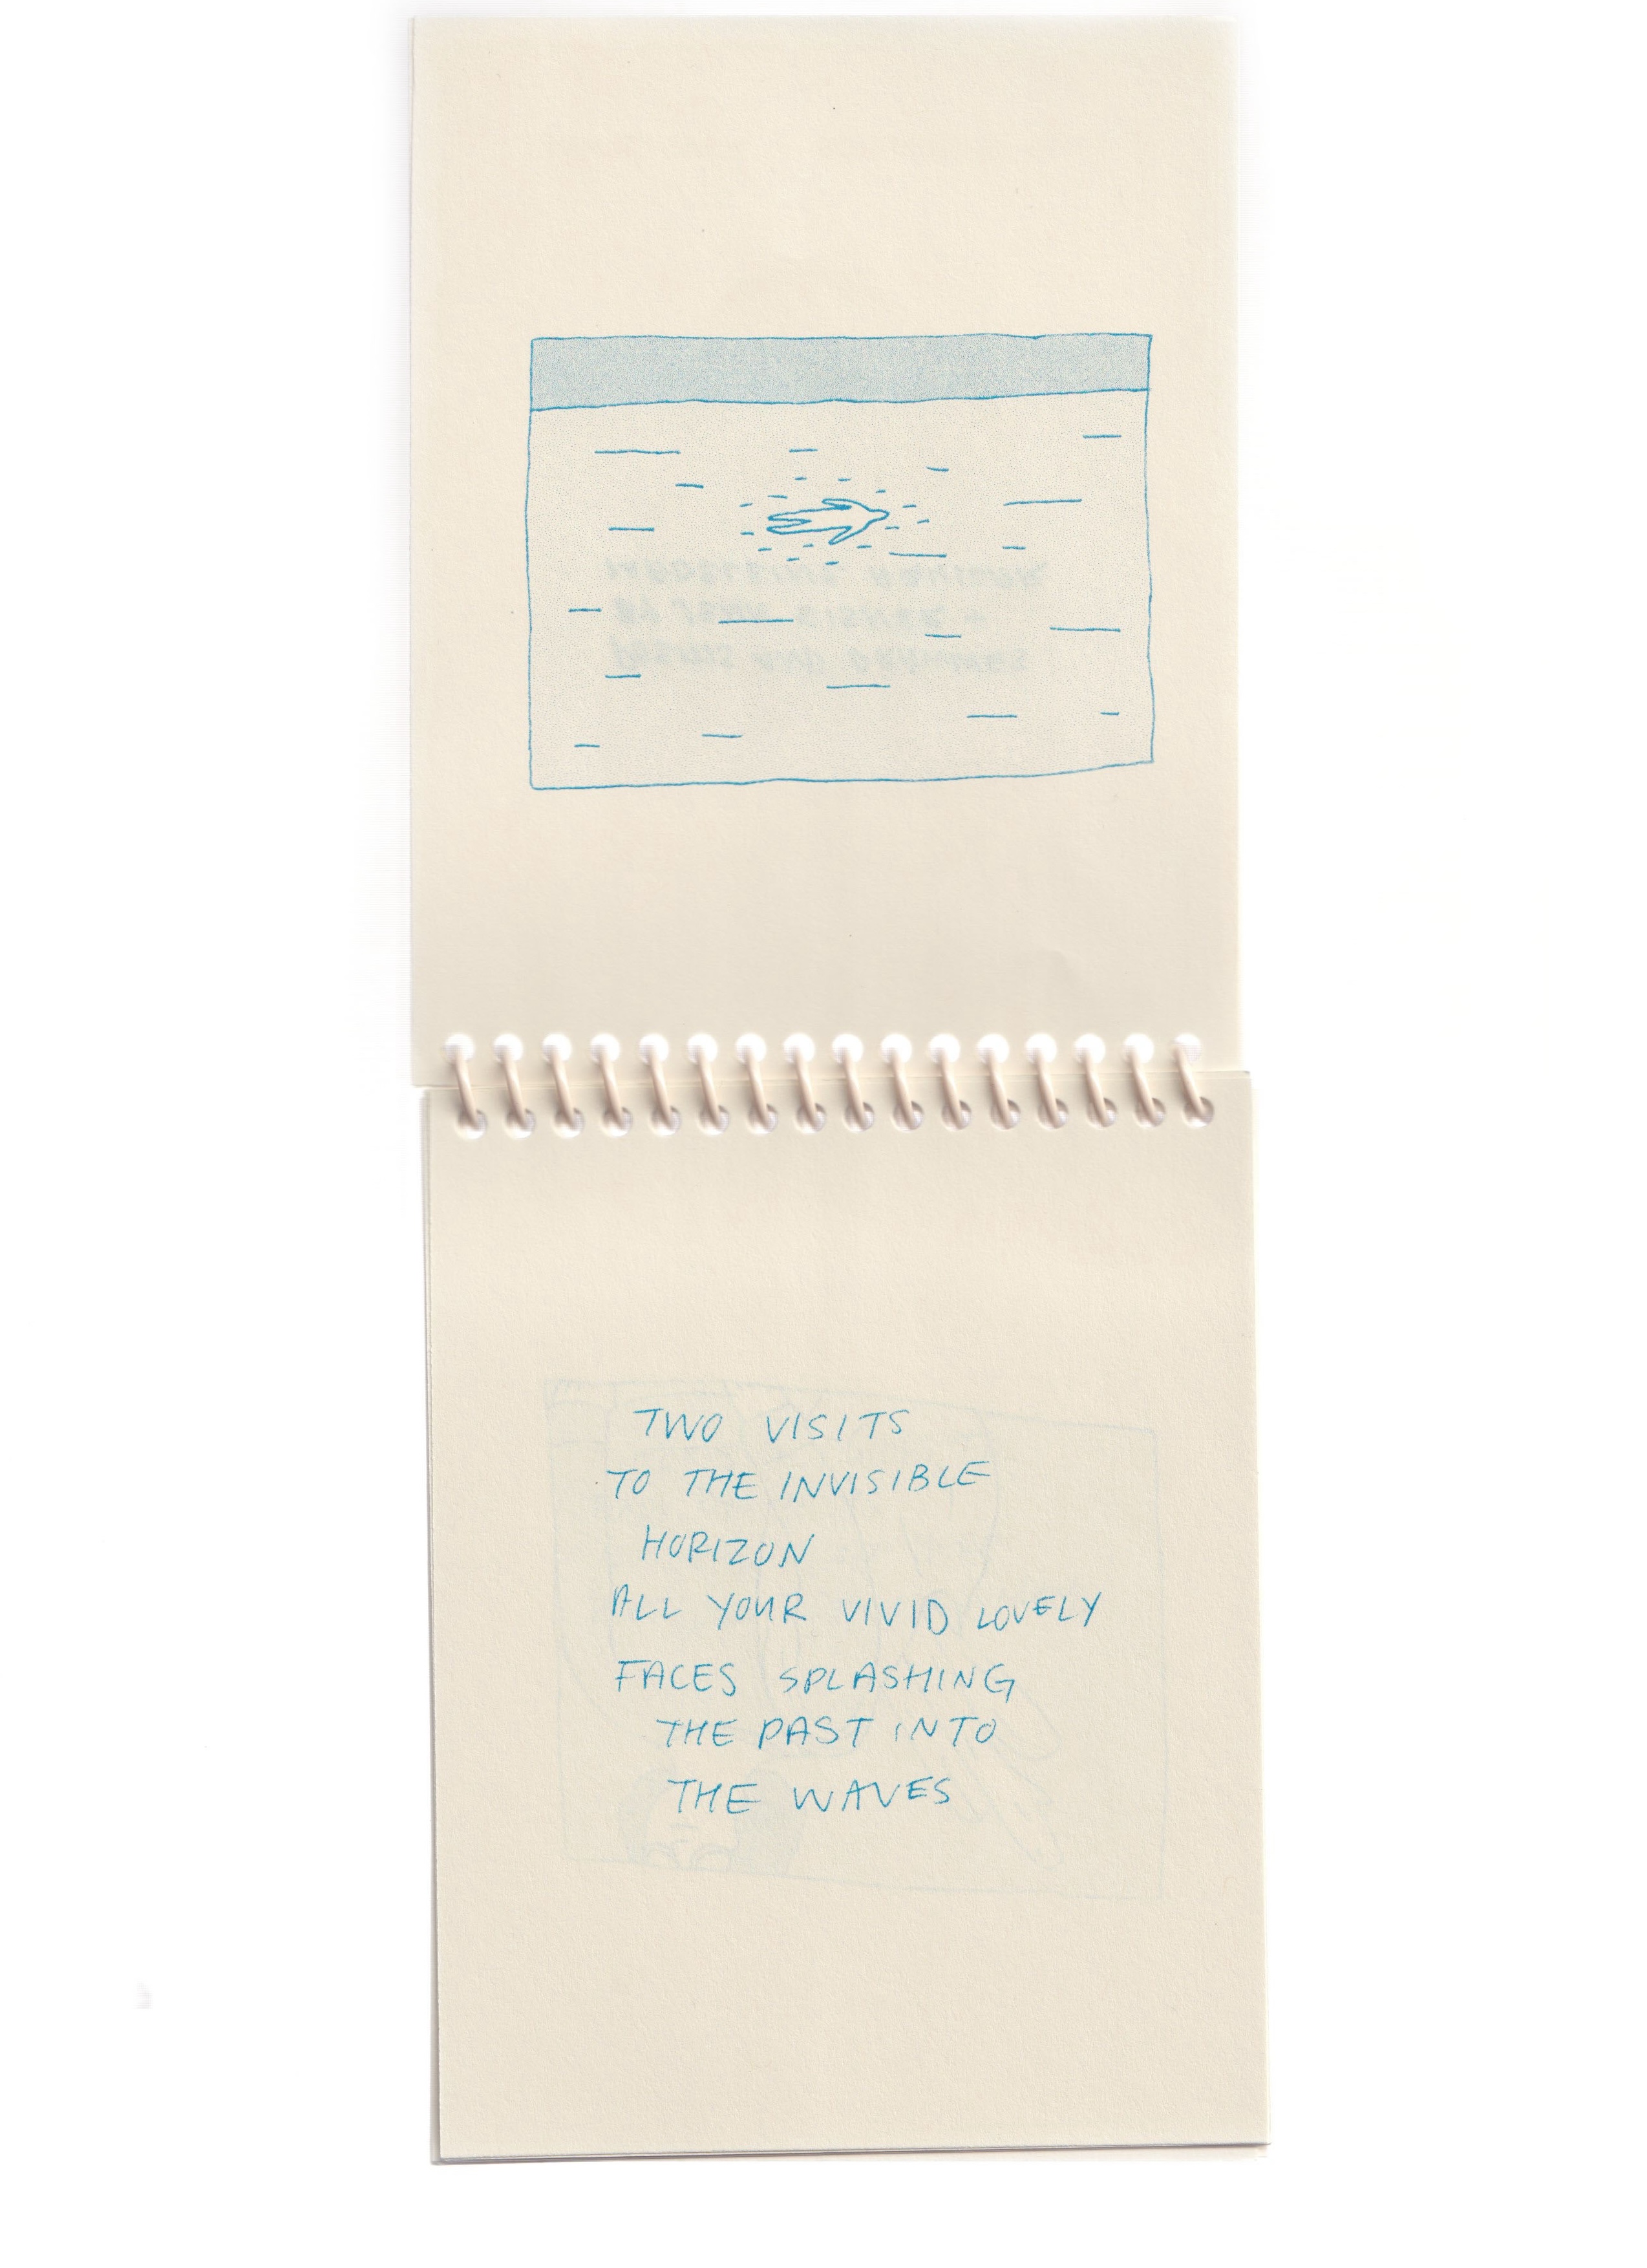 TWO VISITS
TO THE INVISIBLE
HORIZON
ALL YOUR VIVID LOVELY
FACES SPLASHING
THE PAST INTO
THE WAVES